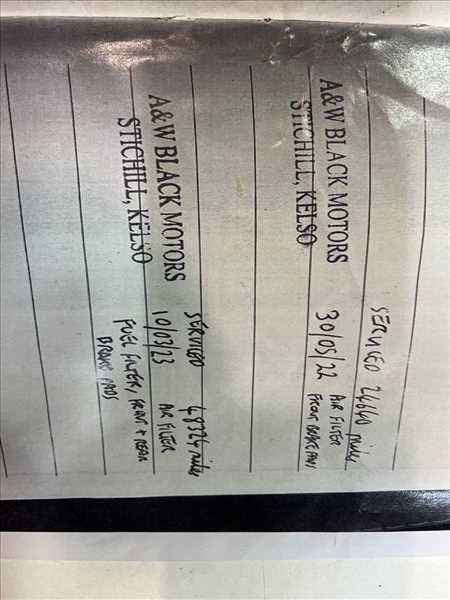 SERVICED 24640 miles
A&W BLACK MOTORS 30/05/22 AIR FILTER
STICHILL, KELSO FRONT BRAKE PADS
SERVICED 48324 miles
A&W BLACK MOTORS 10/03/23 AIR FILTER
STICHILL, KELSO FUEL FILTER, FRONT & REAR
BRAKE PADS